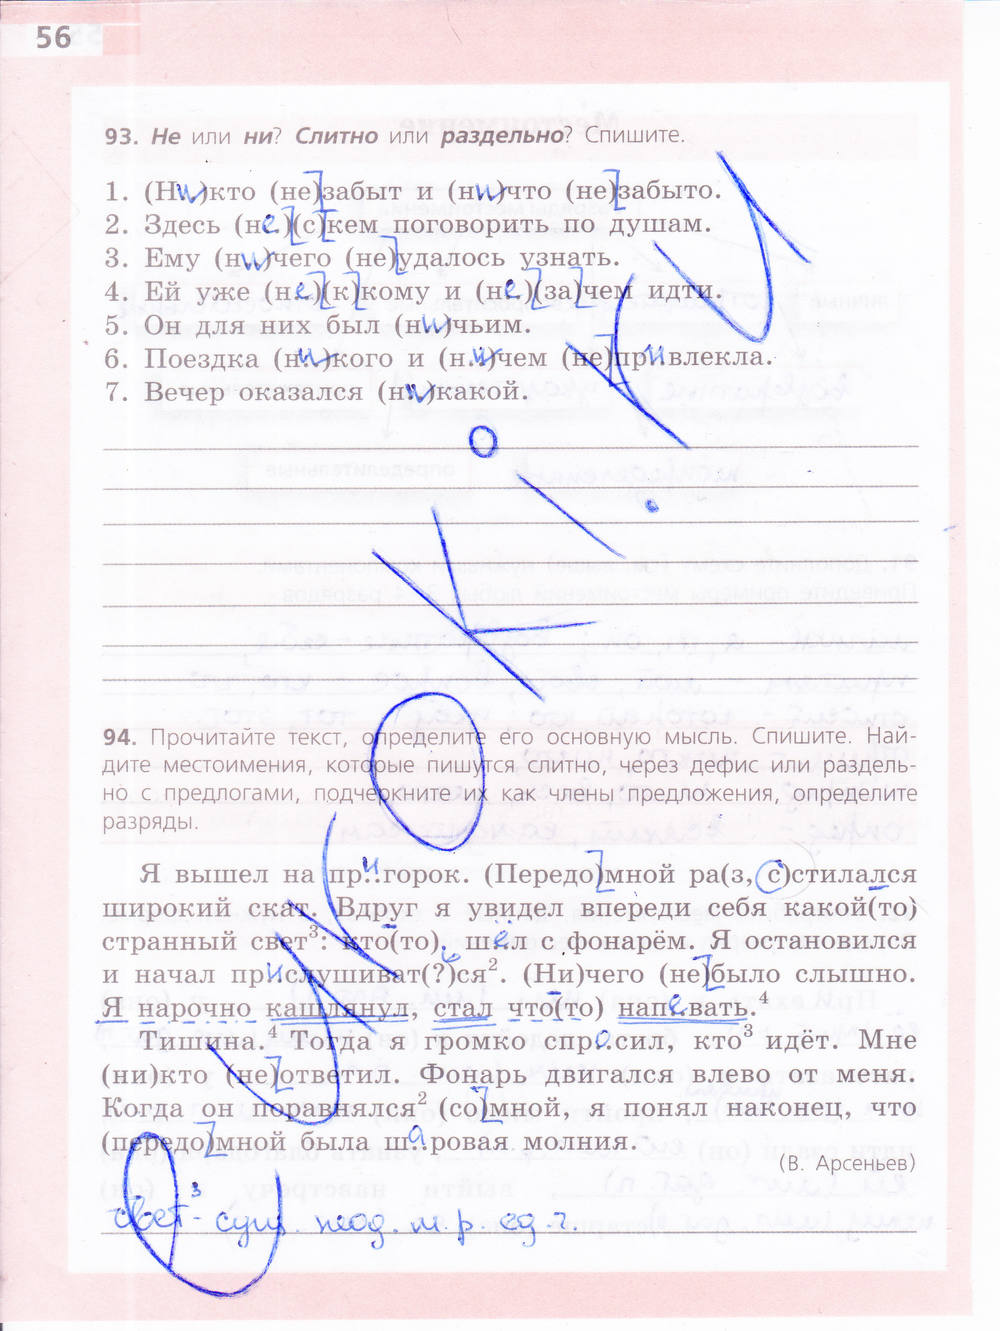 56
93. Не или ни? Слитно или раздельно? Спишите.
1. (Ни)кто (не)забыт и (ни)что (не)забыто.
2. Здесь (не)(с)кем поговорить по душам.
3. Ему (ни)чего (не)удалось узнать.
4. Ей уже (не)(к)кому и (не)(за)чем идти.
5. Он для них был (ни)чьим.
6. Поездка (ни)кого и (ни)чем (не)привлекла.
7. Вечер оказался (ни)какой.
94. Прочитайте текст, определите его основную мысль. Спишите. Най-
дите местоимения, которые пишутся слитно, через дефис или раздель-
но с предлогами, подчеркните их как члены предложения, определите
разряды.
Я вышел на пригорок. (Передо)мной ра(з, с)стилался
широкий скат. Вдруг я увидел впереди себя какой(то)
странный свет³: кто(то). шёл с фонарём. Я остановился
и начал прислушиват(?)ся². (Ни)чего (не)было слышно.
Я нарочно кашлянул, стал что(то) напевать.⁴
Тишина.⁴ Тогда я громко спросил, кто³ идёт. Мне
(ни)кто (не)ответил. Фонарь двигался влево от меня.
Когда он поравнялся² (со)мной, я понял наконец, что
(передо)мной была шаровая молния.
(В. Арсеньев)
свет³ - сущ.
м.р. ед.ч.
УРОКИ.КИ